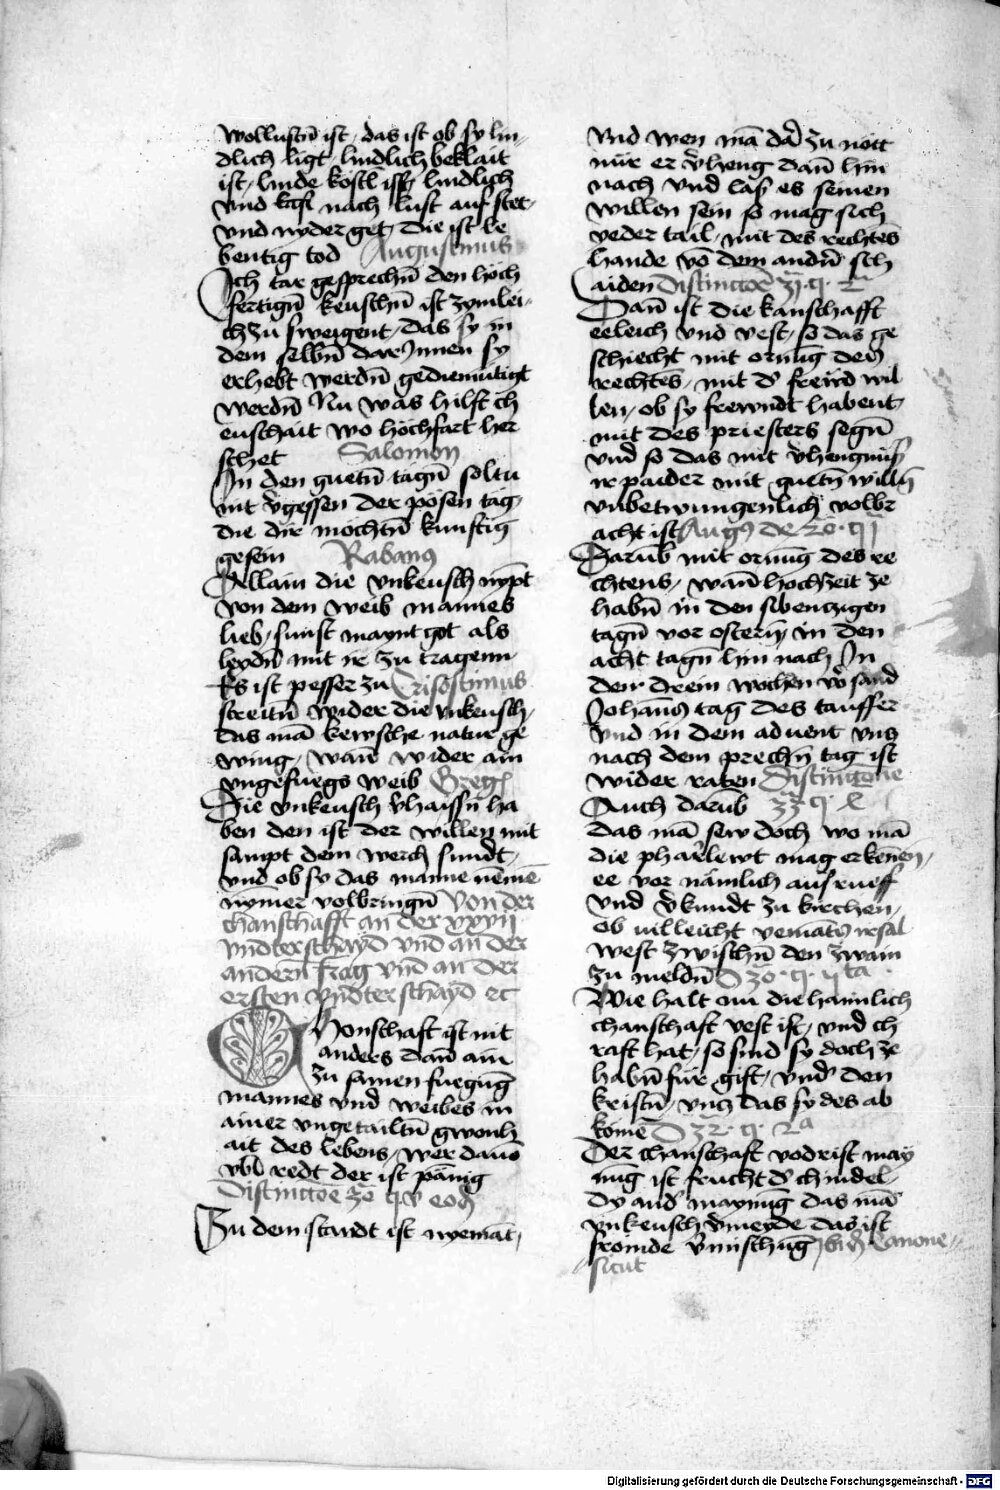 wollustn̄ ist / das ist ob sy lin-
dlich ligt / lindlich beklait
ist / linde kostl isst / lindlich
vnd nach lust auf stet /
vnd nyder get / die ist le
bentig tod Augustinus
Ich tar gesprechn̄ den hoch
fertign̄ keuschn̄ ist zymlei-
ch zu sweigent / das sy in
dem selbn̄ dar Innen sy
erhebt werdn̄ gediemütigt
werdn̄ Nu was hilfft ch
euschait wo hochfart her
schet Salomon
In den guetn̄ tagn̄ soltu
nit v̄gessen der pösen tag /
die dir möchtn̄ kunftig
gesein Rabanꝰ
Allain die vnkeusch nympt
von dem weib mannes
lieb / sunst maynt got als
leydn̄ mit ir zu tragenn /
Es ist pesser zu Crisostimus
streitn̄ wider die vnkeusch /
das mā kewsche natur ge
wing / wann wider ain
vngefuegs weib Greg
Die vnkeusch v̄haissn̄ ha
ben den ist der willen mit
sampt dem werch sundt /
vnd ob sy das manne nēmē
nymer volbringn̄ Von der
chanschafft an der xxvij
vndterschayd vnd an der
andern frag vnd an der
ersten vndterschayd ec
Chonschaft ist nit
anders dann ain
zu samen fuegūg
mannes vnd weibes in
ainer vngetailtn̄ gwonh
ait des lebens / wer dauō
vbl redt der ist pännig
Distinctōe 30 q v eod
Zu dem standt ist nyemāt /
vnd wen mā dar zu nött
nür er v̄heng dann hin
nach vnd las es seinen
willen sein so mag sich
yeder tail / mit des rechtes
hande vō dem andn̄ sch
aiden Distinctōe 31 q 2ᵃ
Dann ist die kanschafft
eeleich vnd vest / so das ge
schiecht mit ornūg des
rechtēs / mit d' frewnd wil
len / ob sy frewndt habent
mit des priesters segn̄
vnd so das mit v̄hengnuss
ir paider mit guetn̄ willn̄
vnbetwungenlich volbr
acht ist Augꝰ de 30 q
Darūb mit ornūg des re
chtens / wann hochzeit ze
habn̄ in den sibentzigen
tagn̄ vor ostern / in den
acht tagn̄ hin nach In
den drein wochen vō sand
Johanns tag des tauffer
vnd in dem aduent vntz
nach dem prechn̄ tag ist
wider raten Distinctione
Auch darūb 33 q
das mā sew doch wo mā
die pharlewt mag erkennen /
ee vor nämlich ausrueff
vnd v̄kundt zu kirchen /
ob villeicht yemāts irsal
west zwischn̄ den zwain
zu meldn̄ D 30 q
Wie halt nu die haimlich
chanschaft vest ist / vnd ch
raft hat / so sind sy doch ze
habn̄ für gift / vnd den
kristn̄ / vntz das sy des ab
komē D 32 q 2ᵃ
Der chanschaft vodrist may
nūg ist frucht d' chindel /
Dy and' maynūg das mā
vnkeusch v̄meyde das ist
frömde v̄mischūg ibid Canone
sicut
Digitalisierung gefördert durch die Deutsche Forschungsgemeinschaft - DFG